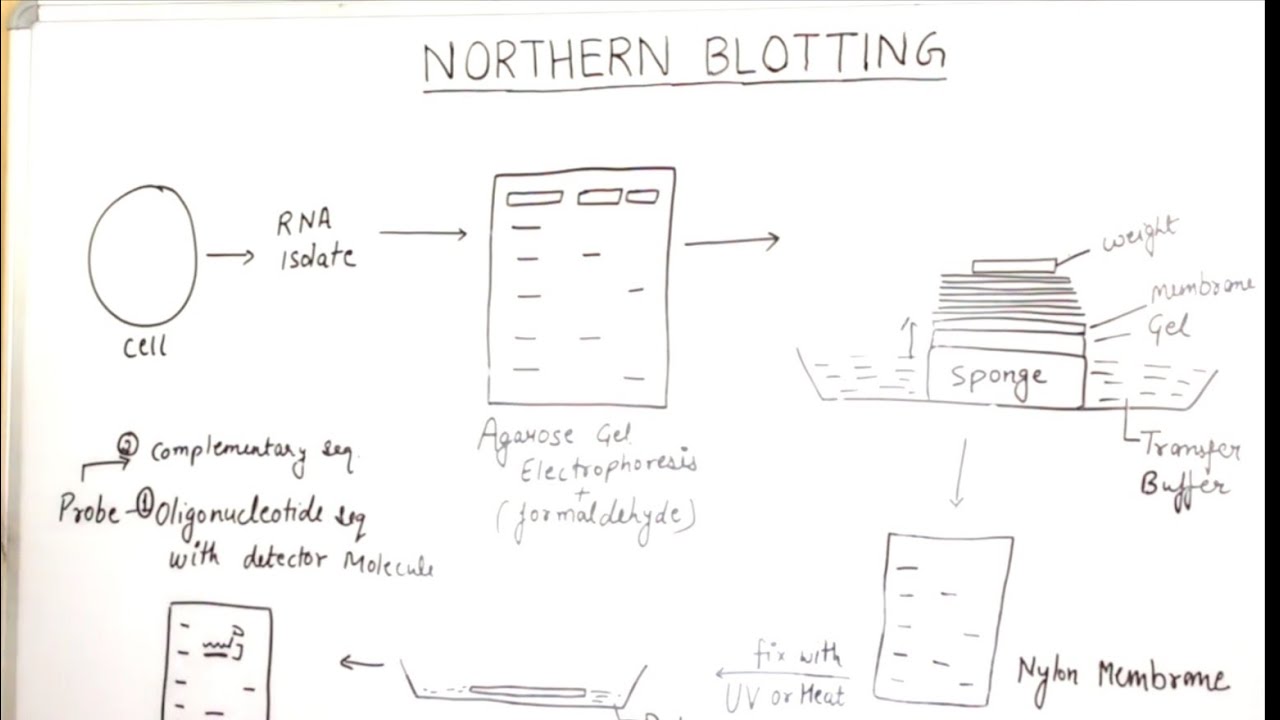 NORTHERN BLOTTING
RNA
isolate
cell
weight
membrane
Gel
Sponge
Transfer
Buffer
Agarose Gel
Electrophoresis
+
(formaldehyde)
② Complementary seq.
Probe - ① Oligonucleotide seq
with detector Molecule
fix with
UV or Heat
Nylon Membrane